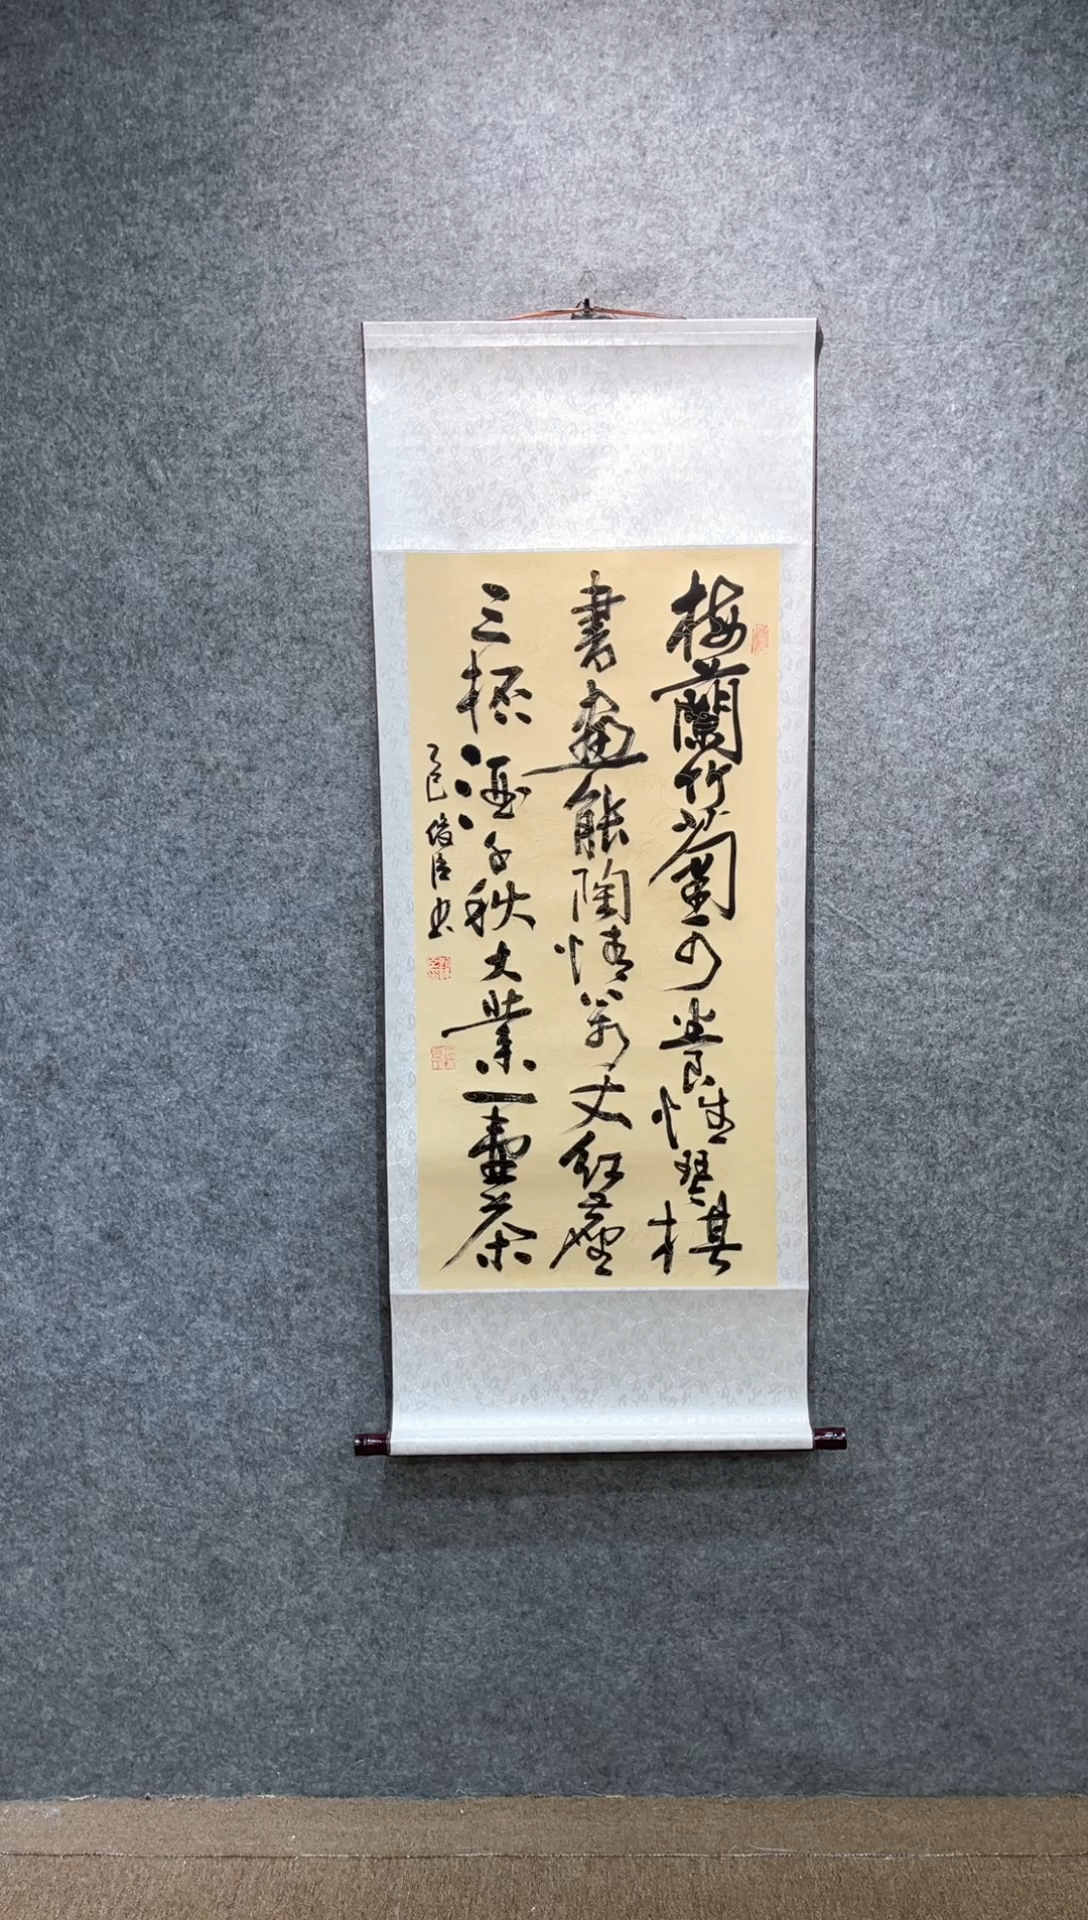 梅蘭竹菊可養性琴棋
書畫能陶情萬丈紅塵
三杯酒千秋大業一壺茶
乙巳俊臣書